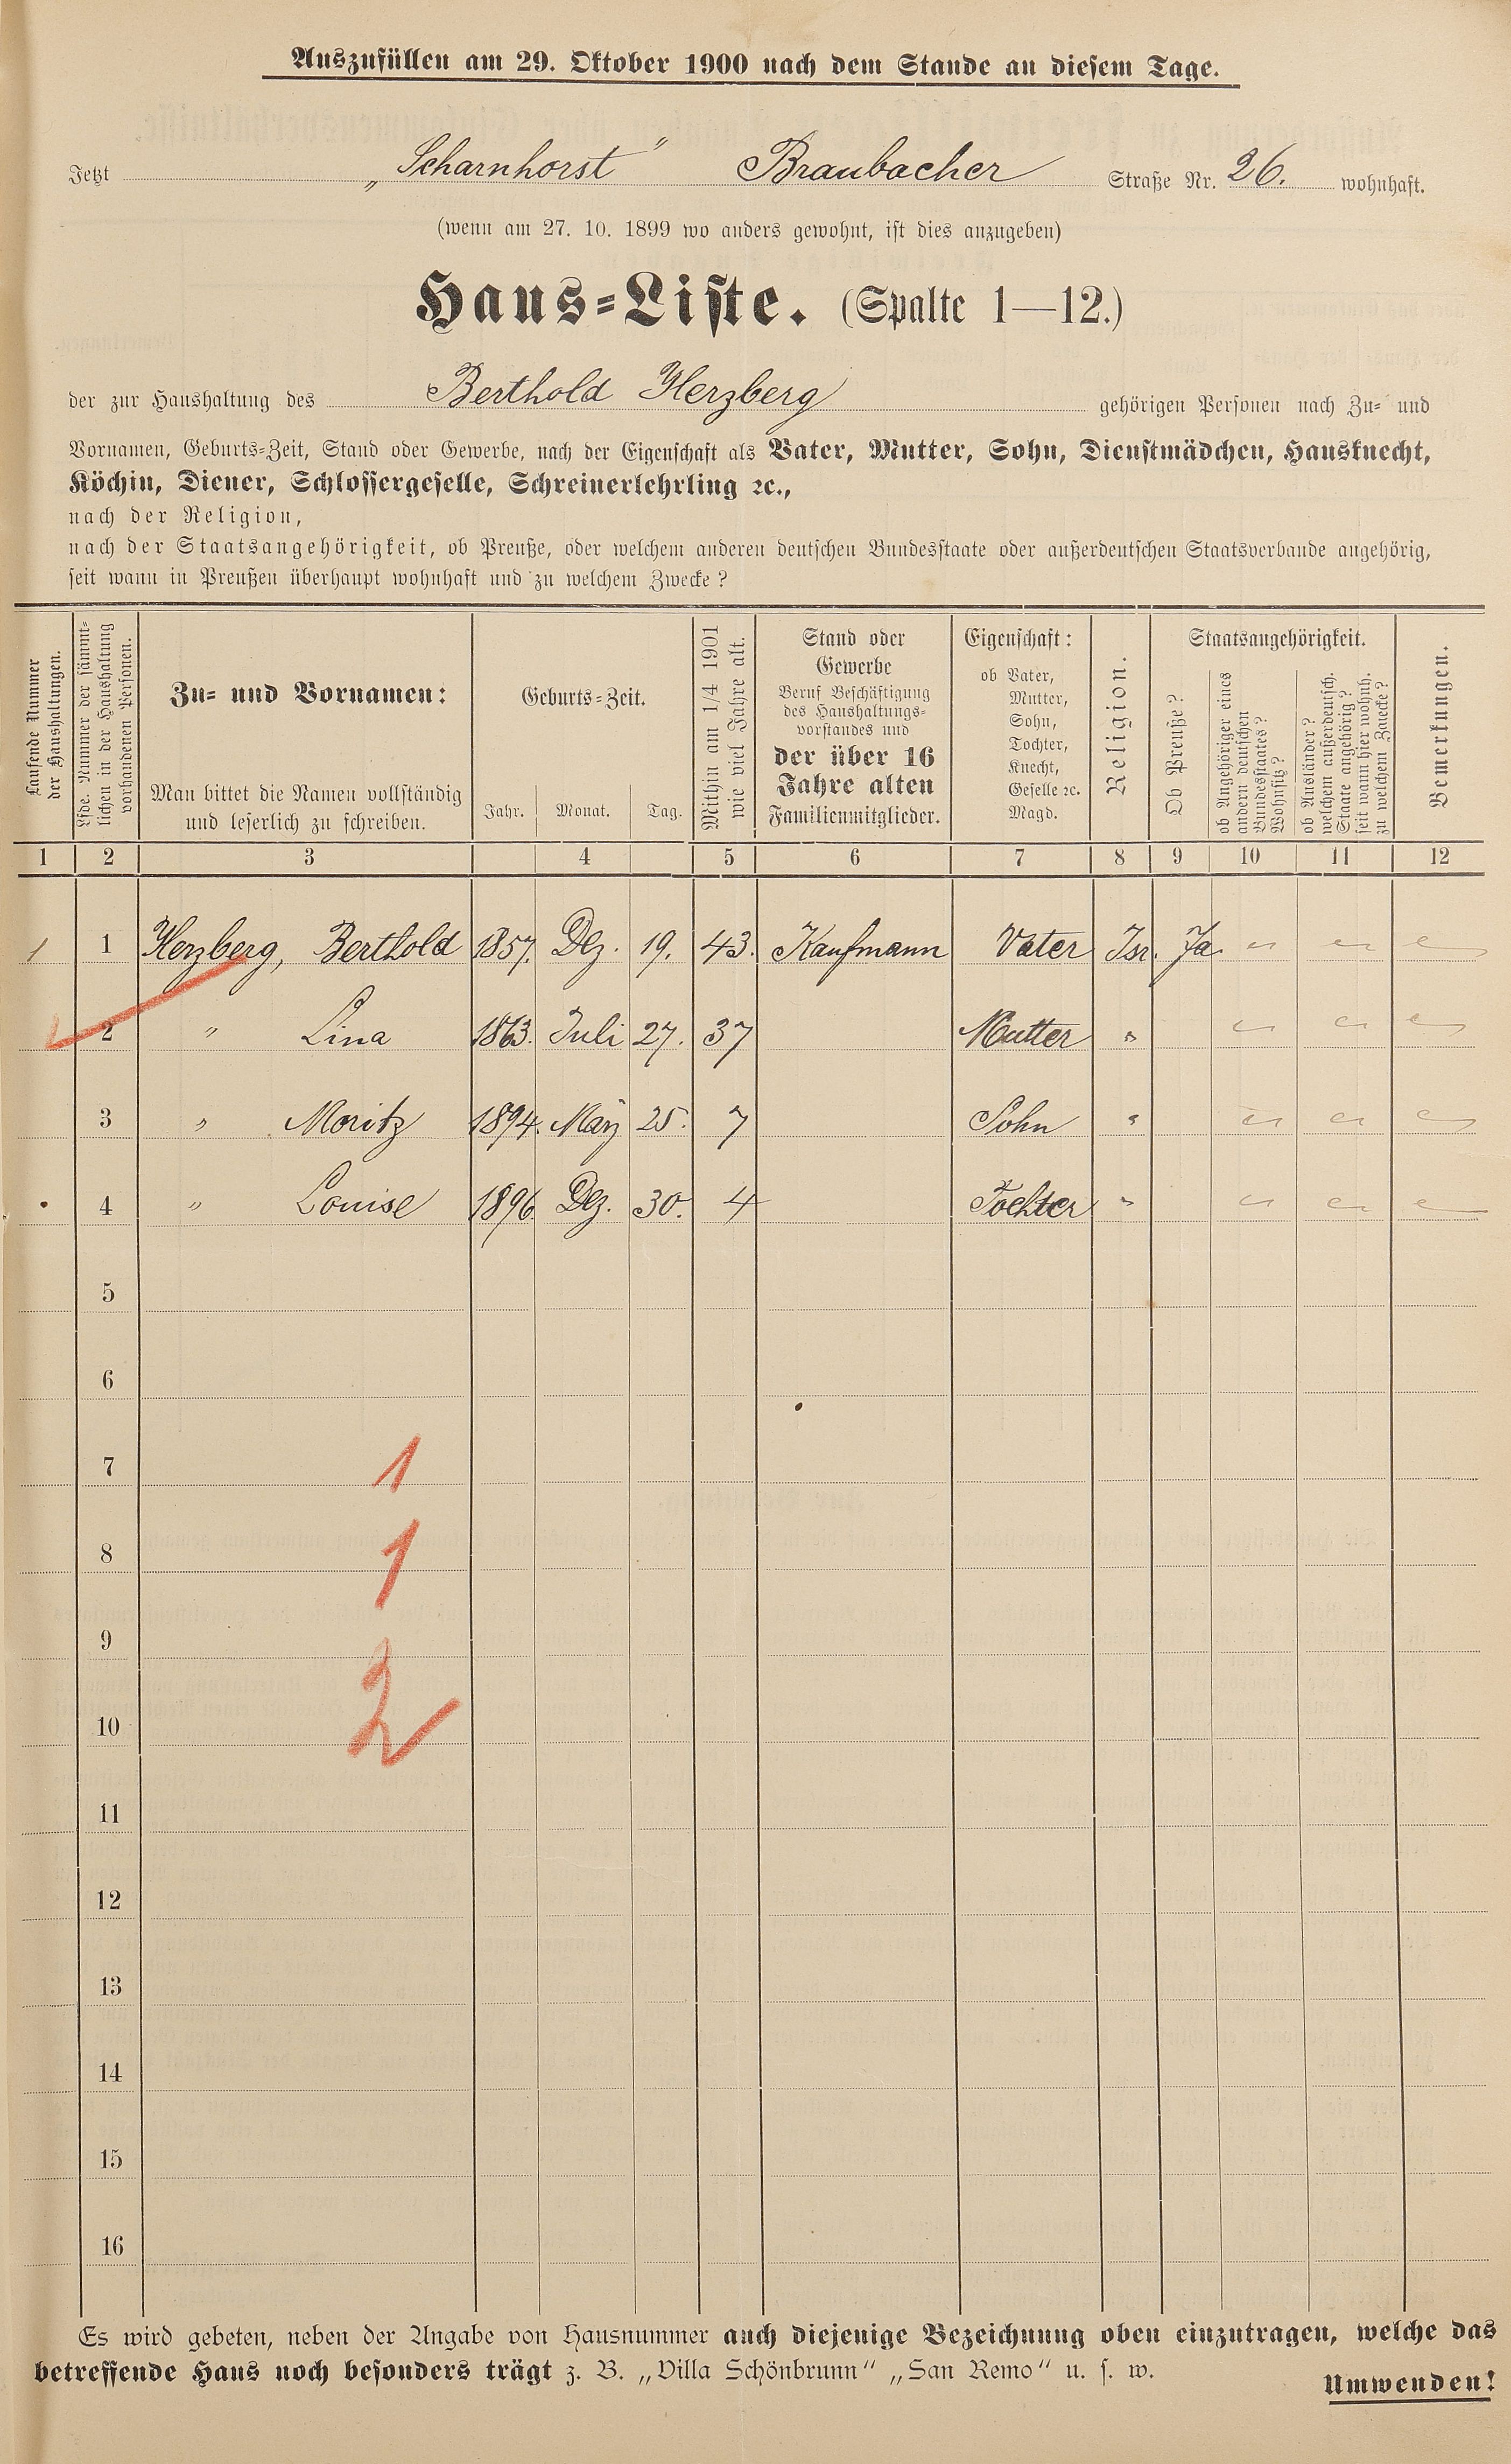 Auszufüllen am 29. Oktober 1900 nach dem Stande an diesem Tage.
Jetzt „Scharnhorst" Braubacher Straße Nr. 26. wohnhaft.
(wenn am 27. 10. 1899 wo anders gewohnt, ist dies anzugeben)
Haus-Liste. (Spalte 1—12.)
der zur Haushaltung des Berthold Herzberg gehörigen Personen nach Zu- und
Vornamen, Geburts-Zeit, Stand oder Gewerbe, nach der Eigenschaft als Vater, Mutter, Sohn, Dienstmädchen, Hausknecht,
Köchin, Diener, Schlossergeselle, Schreinerlehrling ꝛc.,
nach der Religion,
nach der Staatsangehörigkeit, ob Preuße, oder welchem anderen deutschen Bundesstaate oder außerdeutschen Staatsverbande angehörig,
seit wann in Preußen überhaupt wohnhaft und zu welchem Zwecke?
Laufende Nummer
der Haushaltungen.
Lfde. Nummer der sämmt-
lichen in der Haushaltung
vorhandenen Personen.
Zu- und Vornamen:
Man bittet die Namen vollständig
und leserlich zu schreiben.
Geburts-Zeit.
Jahr. Monat. Tag.
Mithin am 1/4 1901
wie viel Jahre alt.
Stand oder
Gewerbe
Beruf Beschäftigung
des Haushaltungs-
vorstandes und
der über 16
Jahre alten
Familienmitglieder.
Eigenschaft:
ob Vater,
Mutter,
Sohn,
Tochter,
Knecht,
Geselle ꝛc.
Magd.
Religion.
Staatsangehörigkeit.
Ob Preuße?
ob Angehöriger eines
andern deutschen
Bundesstaates?
Wohnsitz?
ob Ausländer?
welchem außerdeutsch.
Staate angehörig?
seit wann hier wohnh.
zu welchem Zwecke?
Bemerkungen.
1 2 3 4 5 6 7 8 9 10 11 12
1 1 Herzberg, Berthold 1857. Dez. 19. 43. Kaufmann Vater Isr. Ja. " " "
2 " Lina 1863. Juli 27. 37 Mutter " " " "
3 " Moritz 1894. März 25. 7 Sohn " " " "
4 " Louise 1896 Dez. 30. 4 Tochter " " " "
5
6
7 1
8 1
9
10 2
11
12
13
14
15
16
Es wird gebeten, neben der Angabe von Hausnummer auch diejenige Bezeichnung oben einzutragen, welche das
betreffende Haus noch besonders trägt z. B. „Villa Schönbrunn" „San Remo" u. s. w.
Umwenden!